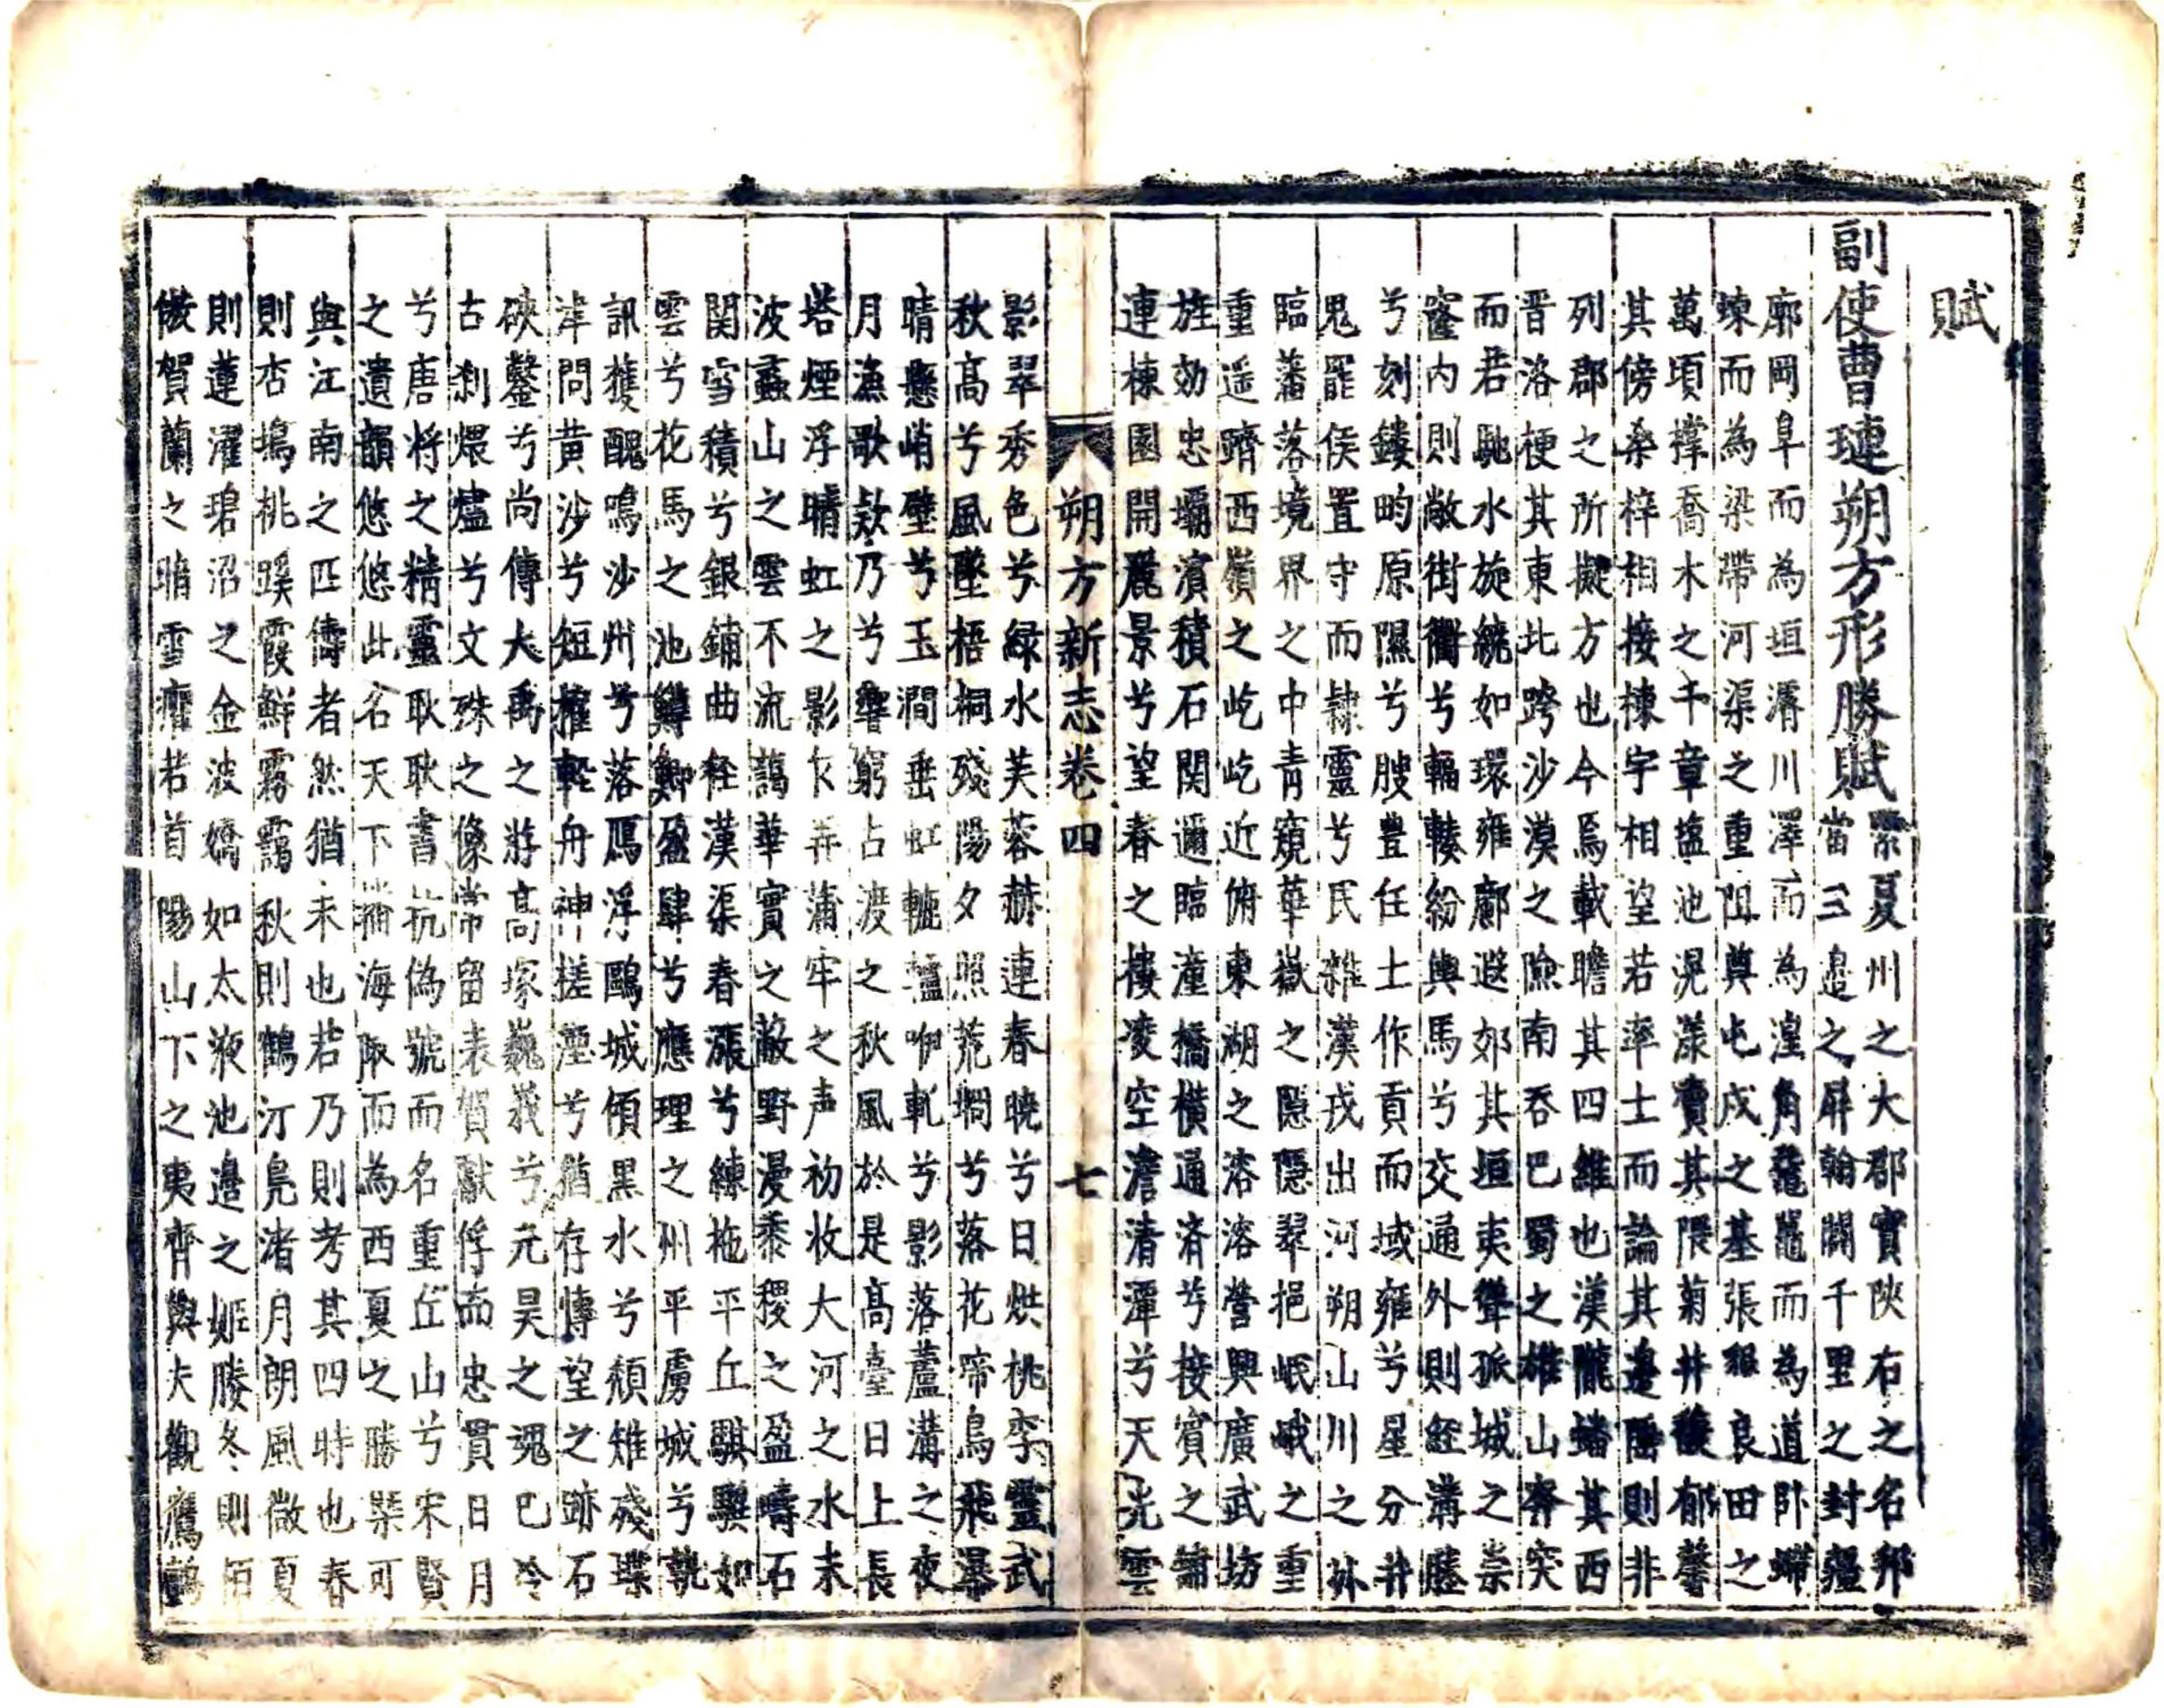 賦
副使曹璉朔方形勝賦
緊夏州之大郡實陝右之名邦
當三邊之屏翰闢千里之封疆
廓岡阜而為垣濬川澤而為湟角黿鼉而為道卧螮
蝀而為梁帶河渠之重阻奠屯戍之基張艱良田之
萬頃撑喬木之千章塩池滉漾賣其隈菊井馥郁馨
其傍桑梓相接棟宇相望若率士而論其邊陲則非
列郡之所擬方也今焉載瞻其四維也漢隴蟠其西
晋洛梗其東北跨沙漠之險南吞巴蜀之雄山奔突
而若馳水旋繞如環雍鄜遐郊其垣夷聳孤城之崇
窿內則敞街衢兮輻轃紛輿馬兮交通外則經溝塍
兮刻鏤畇原隰兮膄豊任土作貢而域雍兮星分井
鬼罷侯置守而隸靈兮民雜漢戎出河朔山川之外
臨蕃落境界之中青窺華嶽之隱隱翠挹岷峨之重
重遥躋西嶺之屹屹近俯東湖之溶溶營興廣武坊
旌効忠壩濱積石関邇臨潼橋橫通济兮接賓之舘
連棟園開麗景兮望春之樓凌空澹清潭兮天光雲
朔方新志卷四 七
影翠秀色兮緑水芙蓉赫連春曉兮日烘桃李靈武
秋高兮風墜梧桐殘陽夕照荒墹兮落花啼鳥飛瀑
晴懸峭壁兮玉澗垂虹轆轤咿軋兮影落蘆溝之夜
月漁歌欸乃兮響窮占渡之秋風於是高臺日上長
塔煙浮晴虹之影乍弄蒲牢之声初收大河之水未
波蠡山之雲不流藹華實之蔽野漫黍稷之盈疇石
関雪積兮銀鋪曲径漢渠春漲兮練拖平丘騏驥如
雲兮花馬之池鱒鯽盈肆兮應理之州平虜城兮執
訊獲醜鳴沙州兮落鴈浮鷗城傾黑水兮頹雉殘堞
津問黄沙兮短擢輕舟神搓湮兮猶存博望之跡石
硤鑿兮尚傳大禹之游高塚巍峩兮元昊之魂已冷
古刹煨爐兮文殊之像常留表賀獻俘而忠貫日月
兮唐将之精靈耿耿書抗偽號而名重丘山兮宋賢
之遺韻悠悠此名天下播海陬而為西夏之勝槩可
與江南之匹儔者然猶未也若乃則考其四時也春
則杏塢桃蹊霞鮮霧靄秋則鶴汀凫渚月朗風微夏
則蓮濯碧沼之金波嬌如太液池邊之姬媵冬則栢
傲賀蘭之暗雪癯若首陽山下之夷齊與夫觀鷹鸇